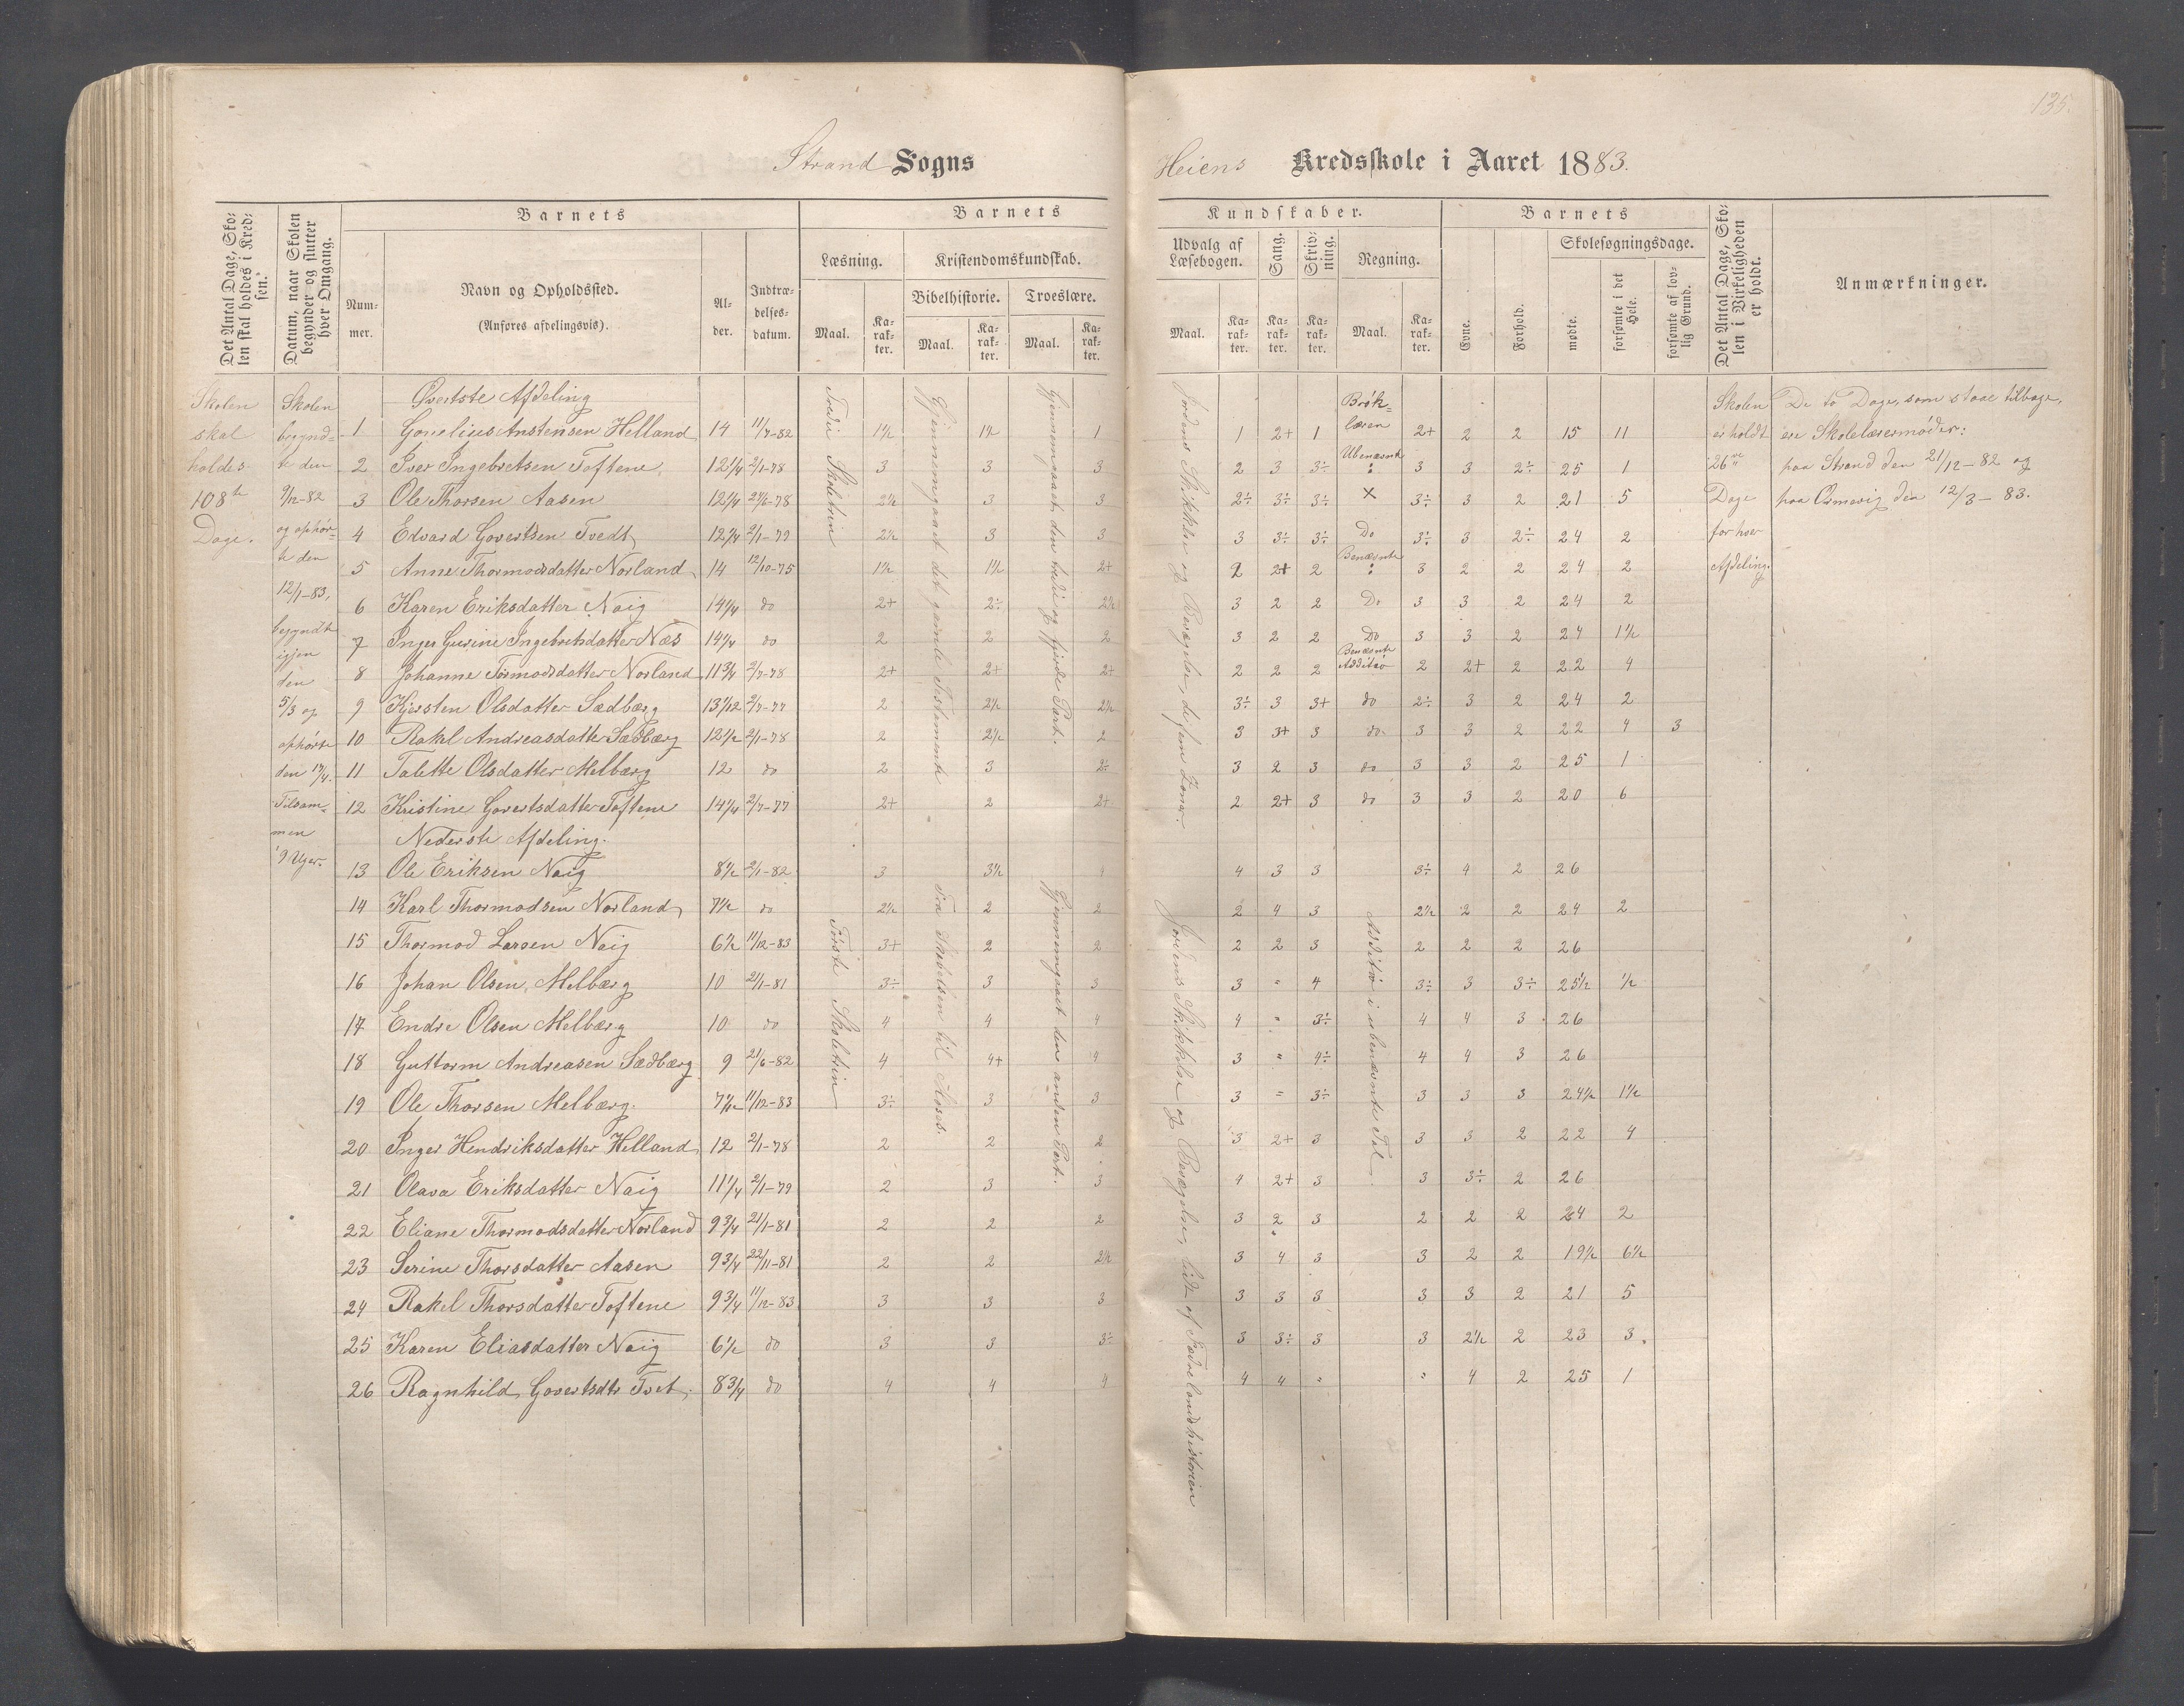 135.
Strand Sogns
Heiens Kredsskole i Aaret 1883.
Det Antal Dage, Skolen skal holdes i Kredsen.
Datum, naar Skolen begynder og slutter hver Omgang.
Barnets
Nummer.
Navn og Opholdssted.
(Anføres afdelingsvis).
Alder.
Indtrædelsesdatum.
Barnets
Læsning.
Kristendomskundskab.
Bibelhistorie.
Troeslære.
Maal.
Karakter.
Maal.
Karakter.
Maal.
Karakter.
Kundskaber.
Udvalg af Læsebogen.
Sang.
Skrivning.
Regning.
Maal.
Karakter.
Karakter.
Karakter.
Maal.
Karakter.
Barnets
Evne.
Forhold.
Skolesøgningsdage.
mødte.
forsømte i det Hele.
forsømte af lovlig Grund.
Det Antal Dage, Skolen i Virkeligheden er holdt.
Anmærkninger.
Skolen skal holdes 108te Dage.
Skolen begyndte den 9/12-82 og ophørte den 12/1-83, begyndte igjen den 5/3 og ophørte den 14/4. Tilsammen 9 Uger.
Øverste Afdeling
Tredie Skoletrin
Gjennemgaaet det gamle Testamente
Gjennemgaaet den tredie og fjerde Part.
Jordens Skikkelse og Bevægelse, de fem Zoner.
1 Gonelius Anstensen Helland 14 11/7-82 1½ 1½ 1 1 2+ 1 Brøklæren 2+ 2 2 15 11
2 Iver Ingebretsen Toftene 12¼ 2/1-78 3 3 3 2 3 3÷ Ubenævnte : 3 3 2÷ 25 1
3 Ole Thorsen Aasen 12¼ 24/6-78 2½ 3 3 2÷ 3÷ 3÷ × 3÷ 3 2 21 5
4 Edvard Govertsen Tvedt 12¼ 2/1-79 2½ 3 3 3 3÷ 3÷ Do 3÷ 3 2÷ 24 2
5 Anne Thormodsdatter Norland 14 12/10-75 1½ 1½ 2+ 2 2+ 2 Benævnte : 3 2 2 24 2
6 Karen Eriksdatter Naig 14¼ do 2+ 2÷ 2½ 3 2 2 Do 3 3 2 24 2
7 Inger Gurine Ingebretsdatter Næs 14¼ do 2 2 2 3 2 2 Do 3 3 2 24 1½
8 Johanne Tormodsdatter Norland 11¾ 2/7-78 2+ 2+ 2+ 2 2 2 Benævnte Additio 2 2+ 2 22 4
9 Kjersten Olsdatter Sædbærg 13 1/12 2/7-77 2 2½ 2½ 3÷ 3 3+ do 2÷ 3 2 24 2
10 Rakel Andreasdatter Sædbærg 12½ 2/1-78 2 2½ 2 3 3+ 3 do 3 3 2 22 4 3
11 Talette Olsdatter Melbærg 12 do 2 3 2÷ 3 2 3 do 3 3 2 25 1
12 Kristine Govertsdatter Toftene 14¼ 2/7-77 2+ 2 2+ 2 2+ 3 do 3 3 2 20 6
Nederste Afdeling.
Første Skoletrin
Fra Skabelsen til Moses.
Gjennemgaaet den anden Part.
Jordens Skikkelse og Bevægelse, lidt af Fædrelandshistorien
Additio i ubenævnte Tal.
13 Ole Eriksen Naig 8½ 2/1-82 3 3½ 4 4 3 3 3÷ 4 2 26
14 Karl Thormodsen Norland 7½ do 2½ 2 2 2 4 3 2½ 2 2 24 2
15 Thormod Larsen Naig 6½ 11/12-83 3+ 2 2 2 2 3 2 2 2 26
16 Johan Olsen Melbærg 10 21/1-81 3÷ 3 3 3 " 4 3÷ 3 3÷ 25½ ½
17 Endre Olsen Melbærg 10 do 4 4 4 4 " 3÷ 4 4 3 26
18 Guttorm Andreasen Sædbærg 9 21/6-82 4 4+ 4 3 " 4÷ 4 4 3 26
19 Ole Thorsen Melbærg. 7½ 11/12-83 3÷ 3 3 3 " 3÷ 3 3 3 24½ 1½
20 Inger Hendriksdatter Helland 12 2/1-78 2 2 2 3 2+ 3 3 3 2 22 4
21 Olava Eriksdatter Naig 11¼ 2/1-79 2 3 3 4 2+ 3 3 3÷ 2 26
22 Eliane Thormodsdatter Norland 9¾ 21/1-81 2 2 2 3 2 3 2 2 2 24 2
23 Serine Thorsdatter Aasen 9¾ 22/11-81 2 2 2½ 3 4 3 3 2 2 19½ 6½
24 Rakel Thorsdatter Toftene 9¾ 11/12-83 3 3 3 3 3 3 3 3 2 21 5
25 Karen Eliasdatter Naig 6½ do 3 3 3÷ 3 3÷ 3 3 2½ 2 23 3
26 Ragnhild Govertsdtr Tvet. 8¾ do 4 4 4 4 4 " " 4 2 25 1
Skolen er holdt 26ve Dage for hver Afdeling.
De to Dage, som staae tilbage,
ere Skolelærermøder:
paa Strand den 21/12-82 og
paa Osmevig den 12/3-83.